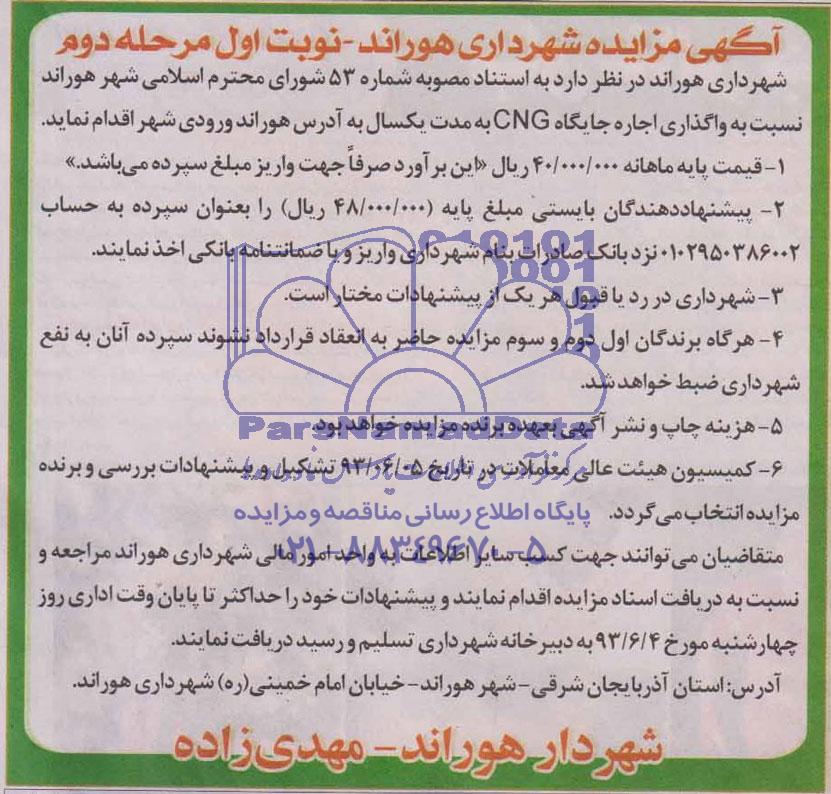 آگهی مزایده شهرداری هوراند-نوبت اول مرحله دوم
شهرداری هوراند در نظر دارد به استناد مصوبه شماره ۵۳ شورای محترم اسلامی شهر هوراند
نسبت به واگذاری اجاره جایگاه CNG به مدت یکسال به آدرس هوراند ورودی شهر اقدام نماید.
۱- قیمت پایه ماهانه ۴۰/۰۰۰/۰۰۰ ریال «این برآورد صرفاً جهت واریز مبلغ سپرده می‌باشد.»
۲- پیشنهاددهندگان بایستی مبلغ پایه (۴۸/۰۰۰/۰۰۰ ریال) را بعنوان سپرده به حساب
۰۱۰۲۹۵۰۳۸۶۰۰۲ نزد بانک صادرات بنام شهرداری واریز و یا ضمانتنامه بانکی اخذ نمایند.
۳- شهرداری در رد یا قبول هر یک از پیشنهادات مختار است.
۴- هرگاه برندگان اول دوم و سوم مزایده حاضر به انعقاد قرارداد نشوند سپرده آنان به نفع
شهرداری ضبط خواهد شد.
۵- هزینه چاپ و نشر آگهی بعهده برنده مزایده خواهد بود.
ParsNamadData
۶- کمیسیون هیئت عالی معاملات در تاریخ ۹۳/۰۶/۰۵ تشکیل و پیشنهادات بررسی و برنده
مزایده انتخاب می گردد.
پایگاه اطلاع رسانی مناقصه و مزایده
متقاضیان می توانند جهت کسب سایر اطلاعات به واحد امور مالی شهرداری هوراند مراجعه و
۰۲۱-۸۸۳۴۹۶۷۰-۵
نسبت به دریافت اسناد مزایده اقدام نمایند و پیشنهادات خود را حداکثر تا پایان وقت اداری روز
چهارشنبه مورخ ۹۳/۶/۴ به دبیرخانه شهرداری تسلیم و رسید دریافت نمایند.
آدرس: استان آذربایجان شرقی-شهر هوراند-خیابان امام خمینی(ره) شهرداری هوراند.
شهردار هوراند- مهدی‌زاده